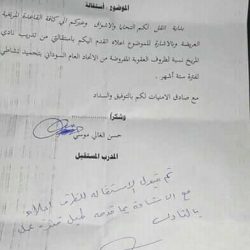 الموضوع : أستقالة
بداية انقل لكم التحايا والأشواق وعبركم الي كافة القاعدة المريخية
العريضة وبالاشارة للموضوع اعلاه اقدم اليكم باستقالتي من تدريب نادي
المريخ نسبة لظروف العقوبة المفروضة من الاتحاد العام السوداني بتجميد نشاطي
لفترة ستة أشهر .
مع صادق الامنيات لكم بالتوفيق والسداد
وشكراً ،
حسن الغالي موسي
المدرب المستقيل
تم قبول الاستقالة للظرف اعلاه
مع الاشادة بما قدمه طيلة فترة عمله
بالنادي